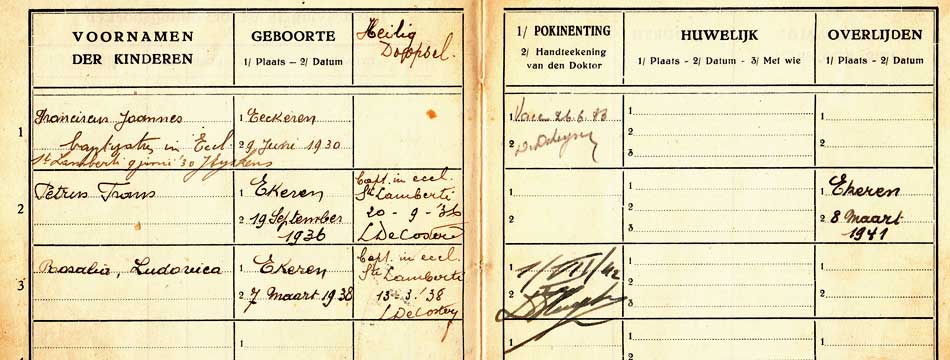 VOORNAMEN
DER KINDEREN
GEBOORTE
1/ Plaats – 2/ Datum
Heilig
Doopsel.
1/ POKINENTING
2/ Handteekening
van den Doktor
HUWELIJK
1/ Plaats - 2/ Datum - 3/ Met wie
OVERLIJDEN
1/ Plaats - 2/ Datum
1
Franciscus Joannes
baptizatus in Eccl.
St Lamberti 9 junii '30
1 Eeckeren
2 9 Junie 1930
1 Vacc 26.6.33
2
1
2
3
1
2
2
Petrus Frans
1 Ekeren
2 19 September
1936
bapt. in eccl.
Sti Lamberti
20 - 9 - '36
L DeCoster
1
2
1
2
3
1 Ekeren
2 8 Maart
1941
3
Rosalia, Ludovica
1 Ekeren
2 7 Maart 1938
bapt. in eccl.
Sti Lamberti
13 - 3 - '38
L DeCoster
1 1/VII/42
2
1
2
3
1
2
1
1
1
2
1